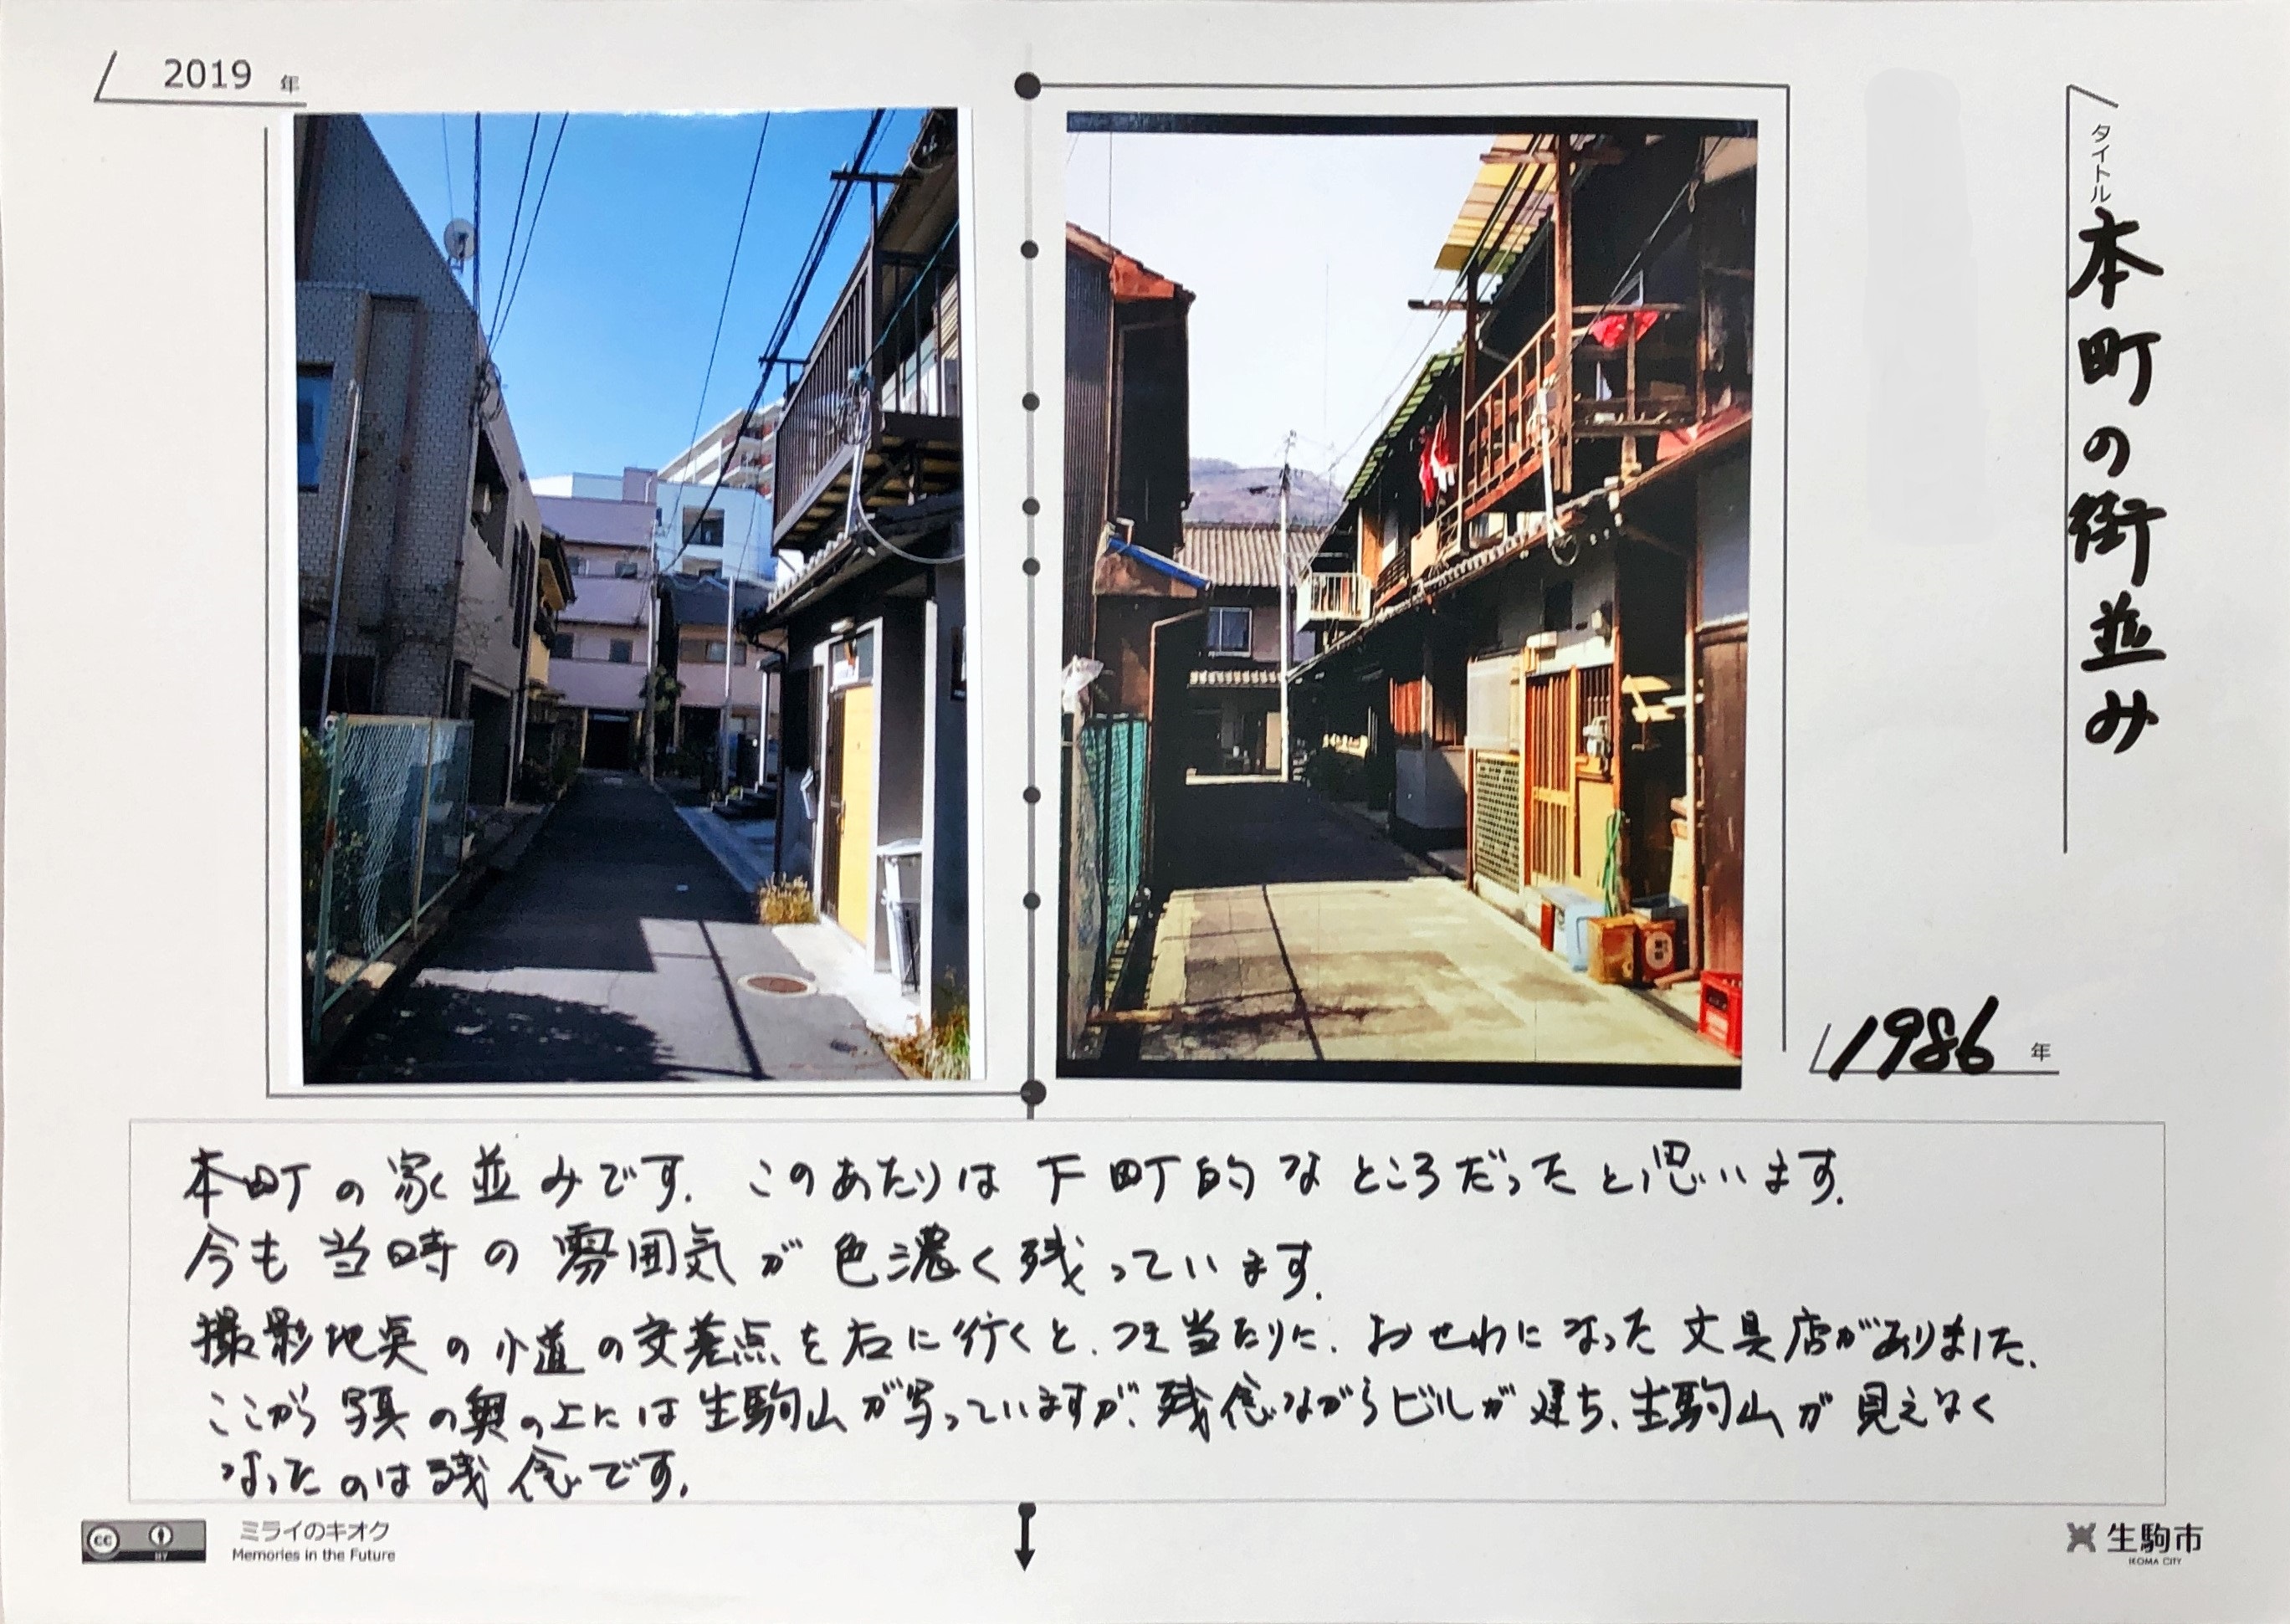 2019 年
タイトル
本町の街並み
1986 年
本町の家並みです。このあたりは下町的なところだったと思います。
今も当時の雰囲気が色濃く残っています。
撮影地点の小道の交差点を右に行くと、つき当たりに、おせわになった文具店がありました。
ここから写真の奥の上には生駒山が写っていますが、残念ながらビルが建ち、生駒山が見えなく
なったのは残念です。
cc
BY
ミライのキオク
Memories in the Future
生駒市
IKOMA CITY